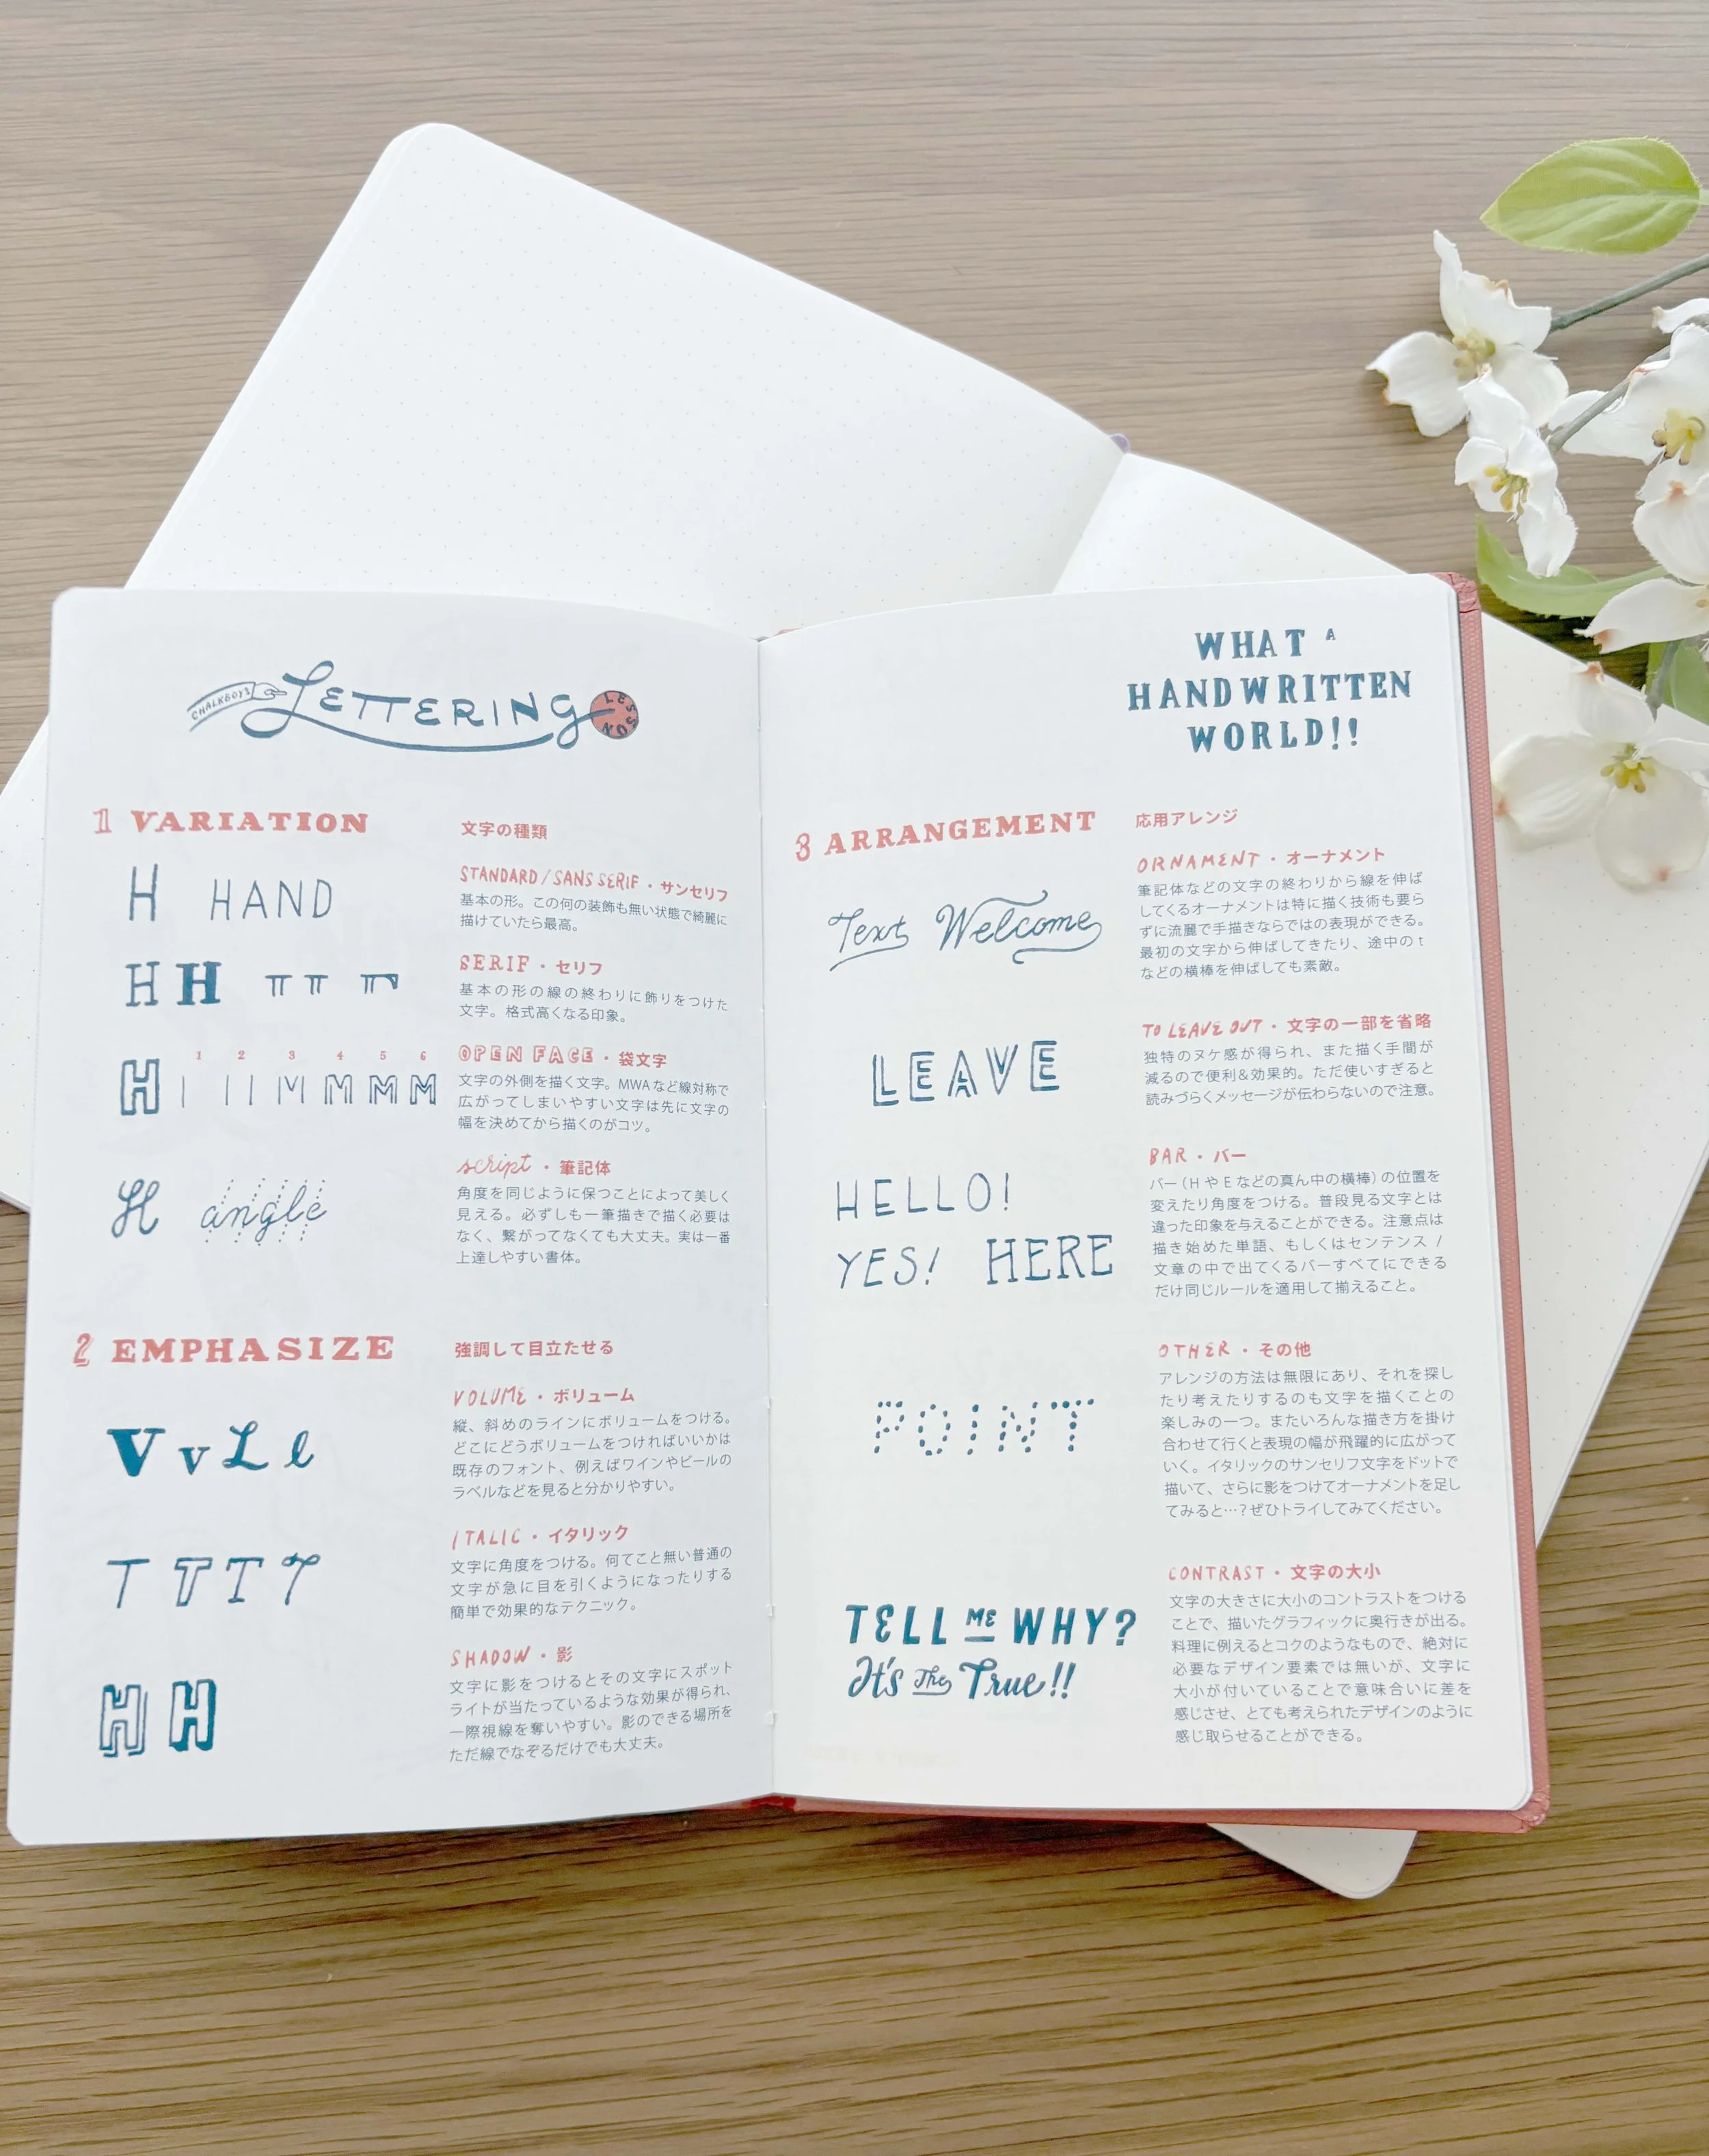 CHALKBOY'S LETTERING LESSON
1 VARIATION
文字の種類
H HAND
STANDARD / SANS SERIF・サンセリフ
基本の形。この何の装飾も無い状態で綺麗に
描けていたら最高。
H H
SERIF・セリフ
基本の形の線の終わりに飾りをつけた
文字。格式高くなる印象。
1 2 3 4 5 6
H M M M M
OPEN FACE・袋文字
文字の外側を描く文字。MWAなど線対称で
広がってしまいやすい文字は先に文字の
幅を決めてから描くのがコツ。
H angle
script・筆記体
角度を同じように保つことによって美しく
見える。必ずしも一筆描きで描く必要は
なく、繋がってなくても大丈夫。実は一番
上達しやすい書体。
2 EMPHASIZE
強調して目立たせる
V v L l
VOLUME・ボリューム
縦、斜めのラインにボリュームをつける。
どこにどうボリュームをつければいいかは
既存のフォント、例えばワインやビールの
ラベルなどを見ると分かりやすい。
T T T T
ITALIC・イタリック
文字に角度をつける。何てこと無い普通の
文字が急に目を引くようになったりする
簡単で効果的なテクニック。
H H
SHADOW・影
文字に影をつけるとその文字にスポット
ライトが当たっているような効果が得られ、
一際視線を奪いやすい。影のできる場所を
ただ線でなぞるだけでも大丈夫。
WHAT A
HANDWRITTEN
WORLD!!
3 ARRANGEMENT
応用アレンジ
Text Welcome
ORNAMENT・オーナメント
筆記体などの文字の終わりから線を伸ば
してくるオーナメントは特に描く技術も要ら
ずに流麗で手描きならではの表現ができる。
最初の文字から伸ばしてきたり、途中の t
などの横棒を伸ばしても素敵。
LEAVE
TO LEAVE OUT・文字の一部を省略
独特のヌケ感が得られ、また描く手間が
減るので便利&効果的。ただ使いすぎると
読みづらくメッセージが伝わらないので注意。
HELLO!
YES! HERE
BAR・バー
バー(HやEなどの真ん中の横棒)の位置を
変えたり角度をつける。普段見る文字とは
違った印象を与えることができる。注意点は
描き始めた単語、もしくはセンテンス /
文章の中で出てくるバーすべてにできる
だけ同じルールを適用して揃えること。
POINT
OTHER・その他
アレンジの方法は無限にあり、それを探し
たり考えたりするのも文字を描くことの
楽しみの一つ。またいろんな描き方を掛け
合わせて行くと表現の幅が飛躍的に広がって
いく。イタリックのサンセリフ文字をドットで
描いて、さらに影をつけてオーナメントを足し
てみると…?ぜひトライしてみてください。
TELL ME WHY?
It's The True!!
CONTRAST・文字の大小
文字の大きさに大小のコントラストをつける
ことで、描いたグラフィックに奥行きが出る。
料理に例えるとコクのようなもので、絶対に
必要なデザイン要素では無いが、文字に
大小が付いていることで意味合いに差を
感じさせ、とても考えられたデザインのように
感じ取らせることができる。